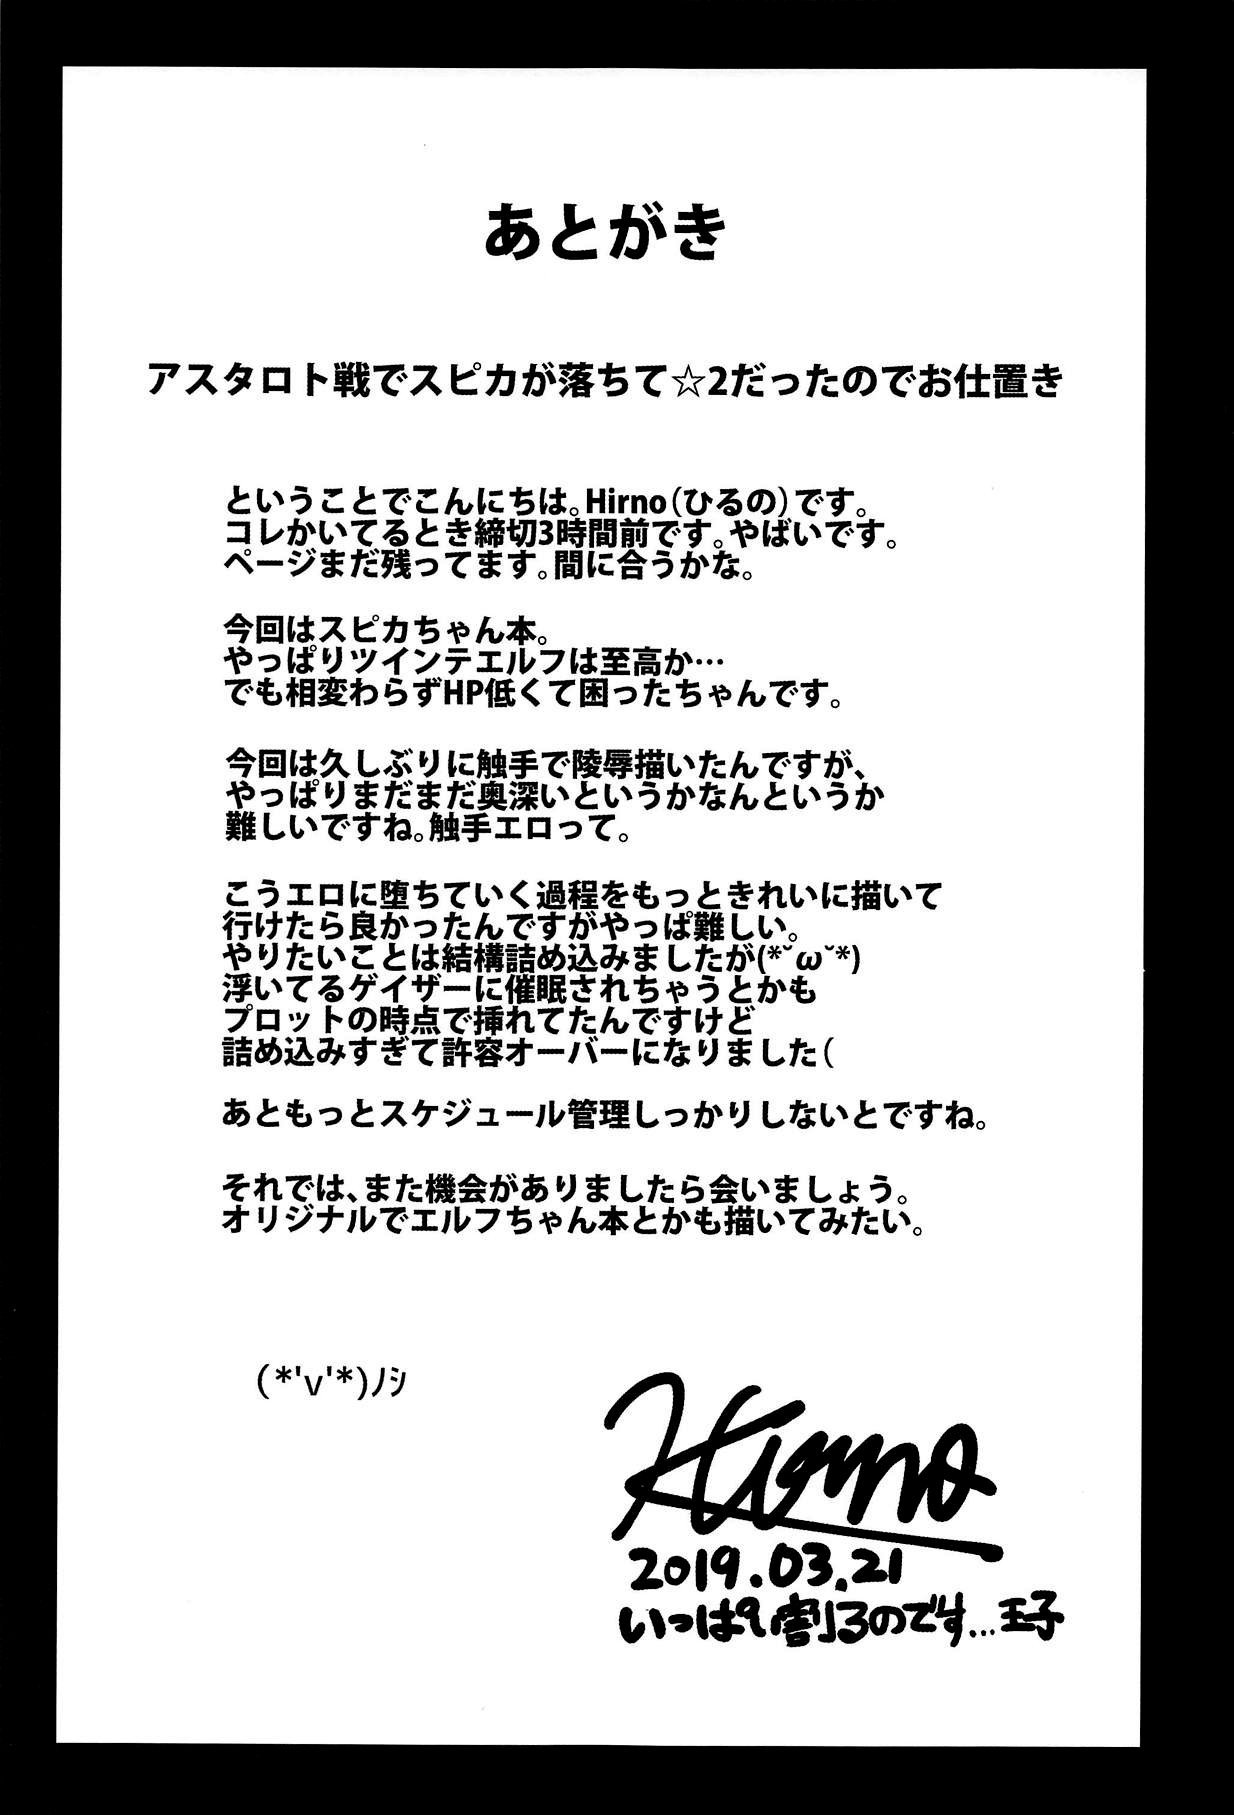 あとがき
アスタロト戦でスピカが落ちて☆2だったのでお仕置き
ということでこんにちは。Hirno(ひるの)です。
コレかいてるとき締切3時間前です。やばいです。
ページまだ残ってます。間に合うかな。
今回はスピカちゃん本。
やっぱりツインテエルフは至高か…
でも相変わらずHP低くて困ったちゃんです。
今回は久しぶりに触手で陵辱描いたんですが、
やっぱりまだまだ奥深いというかなんというか
難しいですね。触手エロって。
こうエロに堕ちていく過程をもっときれいに描いて
行けたら良かったんですがやっぱ難しい。
やりたいことは結構詰め込みましたが(*˘ω˘*)
浮いてるゲイザーに催眠されちゃうとかも
プロットの時点で挿れてたんですけど
詰め込みすぎて許容オーバーになりました(
あともっとスケジュール管理しっかりしないとですね。
それでは、また機会がありましたら会いましょう。
オリジナルでエルフちゃん本とかも描いてみたい。
(*'v'*)ﾉｼ
Hirno
2019.03.21
いっぱい割るのです...王子